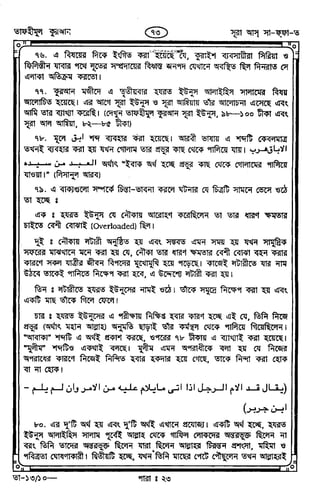 তাফহীমুল কুরআন
৭৩
সূরা আস্ সা-ফ্ফা-ত
৭৬. এ বিষয়ের দিকে ইংগিত করা হয়েছে যে, কুরাইশ ব্যবসায়ীরা সিরিয়া ও
ফিলিস্তীন যাবার পথে লূতের সম্প্রদায়ের বিধ্বস্ত জনপদ যেখানে অবস্থিত ছিল দিনরাত সে
এলাকা অতিক্রম করতো।
৭৭. কুরআন মজীদে এ তৃতীয়বার হযরত ইউনুস আলাইহিস সালামের বিষয়
আলোচিত হয়েছে। এর আগে সূরা ইউনুস ও সূরা আম্বিয়ায় তাঁর আলোচনা এসেছে এবং
আমি তার ব্যাখ্যা করেছি। (দেখুন তাফহীমুল কুরআন সূরা ইউনুস, ৯৮—১০০ টীকা এবং
সূরা আল আম্বিয়া, ৮২—৮৫ টীকা)
৭৮. মূলে ابق শব্দ ব্যবহার করা হয়েছে। আরবী ভাষায় এ শব্দটি কেবলমাত্র
তখনই ব্যবহার করা হয় যখন গোলাম তার প্রভুর কাছ থেকে পালিয়ে যায়।
الاباق هرب العبد من سيده অর্থাৎ "ইবাক অর্থ হচ্ছে প্রভুর কাছ থেকে গোলামের পালিয়ে
যাওয়া।" (লিসানুল আরব)
৭৯. এ বাক্যগুলো সম্পর্কে চিন্তা-ভাবনা করলে ঘটনার যে চিত্রটি সামনে ভেসে ওঠে
তা হচ্ছে ঃ
এক ঃ হযরত ইউনুস যে নৌকায় আরোহণ করেছিলেন তা তার ধারণ ক্ষমতার
চাইতে বেশী বোঝাই (Overloaded) ছিল।
দুই ঃ নৌকায় লটারী অনুষ্ঠিত হয় এবং সম্ভবত এমন সময় হয় যখন সামুদ্রিক
সফরের মাঝখানে মনে করা হয় যে, নৌকা তার ধারণ ক্ষমতার বেশী বোঝা বহন করার
কারণে সকল যাত্রীর জীবন বিপদের মুখোমুখি হয়ে পড়েছে। কাজেই লটারীতে যার নাম
উঠবে তাকেই পানিতে নিক্ষেপ করা হবে, এ উদ্দেশ্যে লটারী করা হয়।
তিন ঃ লটারীতে হযরত ইউনুসের নামই ওঠে। তাঁকে সমুদ্রে নিক্ষেপ করা হয় এবং
একটি মাছ তাঁকে গিলে ফেলে।
চার ঃ হযরত ইউনুসের এ পরীক্ষায় নিক্ষিপ্ত হবার কারণ হচ্ছে এই যে, তিনি নিজের
প্রভুর (অর্থাৎ মহান আল্লাহ) অনুমতি ছাড়াই তাঁর কর্মস্থল থেকে পালিয়ে গিয়েছিলেন।
"আবাকা" শব্দটি এ অর্থই প্রকাশ করছে, ওপরের ৭৮ টীকায় এ ব্যাখ্যাই করা হয়েছে।
"মুলীম" শব্দটিও একথাই বলছে। মুলীম এমন অপরাধীকে বলা হয় যে নিজের
অপরাধের কারণে নিজেই নিন্দিত হবার হকদার হয়ে গেছে, তাকে নিন্দা করা হোক
বা না হোক।
(يقال قد الام الرجل اذا اتى مايلام عليه من الامر وان لم يلم –
ابن جرير)
৮০. এর দু'টি অর্থ হয় এবং দু'টি অর্থই এখানে প্রযোজ্য। একটি অর্থ হচ্ছে, হযরত
ইউনুস আলাইহিস সালাম পূর্বেই আল্লাহ থেকে গাফিল লোকদের অন্তরভুক্ত ছিলেন না
বরং তিনি তাদের অন্তরভুক্ত ছিলেন যারা ছিলেন আল্লাহর চিরন্তন প্রশংসা, মহিমা ও
পবিত্রতা ঘোষণাকারী। দ্বিতীয়টি হচ্ছে, যখন তিনি মাছের পেটে পৌঁছুলেন তখন আল্লাহরই
তা-১৩/১০—
পারা ঃ ২৩